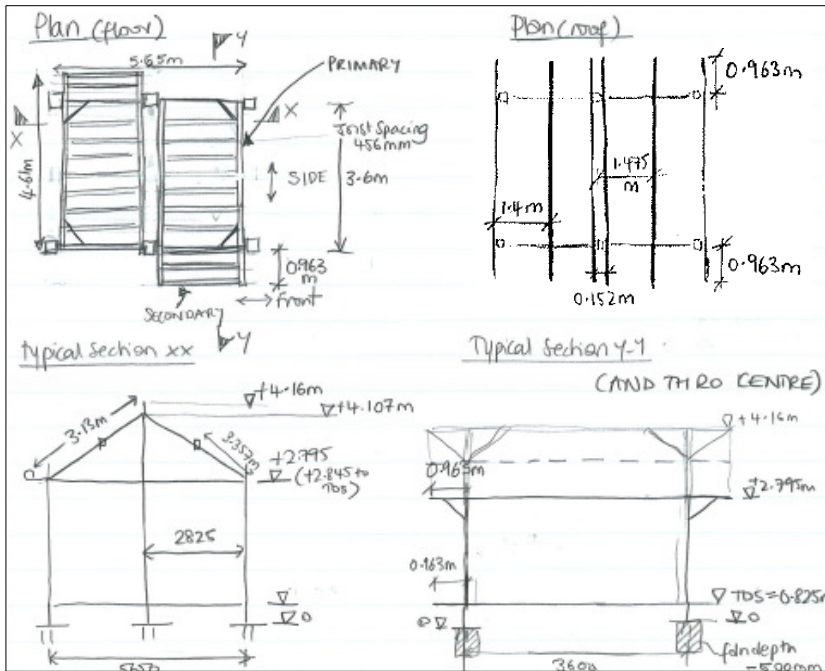 Plan (floor)
Y
5.65m
PRIMARY
X
X
Joist Spacing
456mm
4.61m
SIDE
3.6m
0.963
m
Front
SECONDARY
Y
Plan (roof)
0.963m
1.475
m
1.4m
0.963m
0.152m
Typical Section xx
+4.16m
+4.107m
3.13m
3.357m
+2.795
(+2.845 to
TOS)
2825
0
5650
Typical Section Y-Y
(AND THRO CENTRE)
+4.16m
0.963m
+2.795m
0.963m
TOS=0.825m
0
fdn depth
3600
-500mm